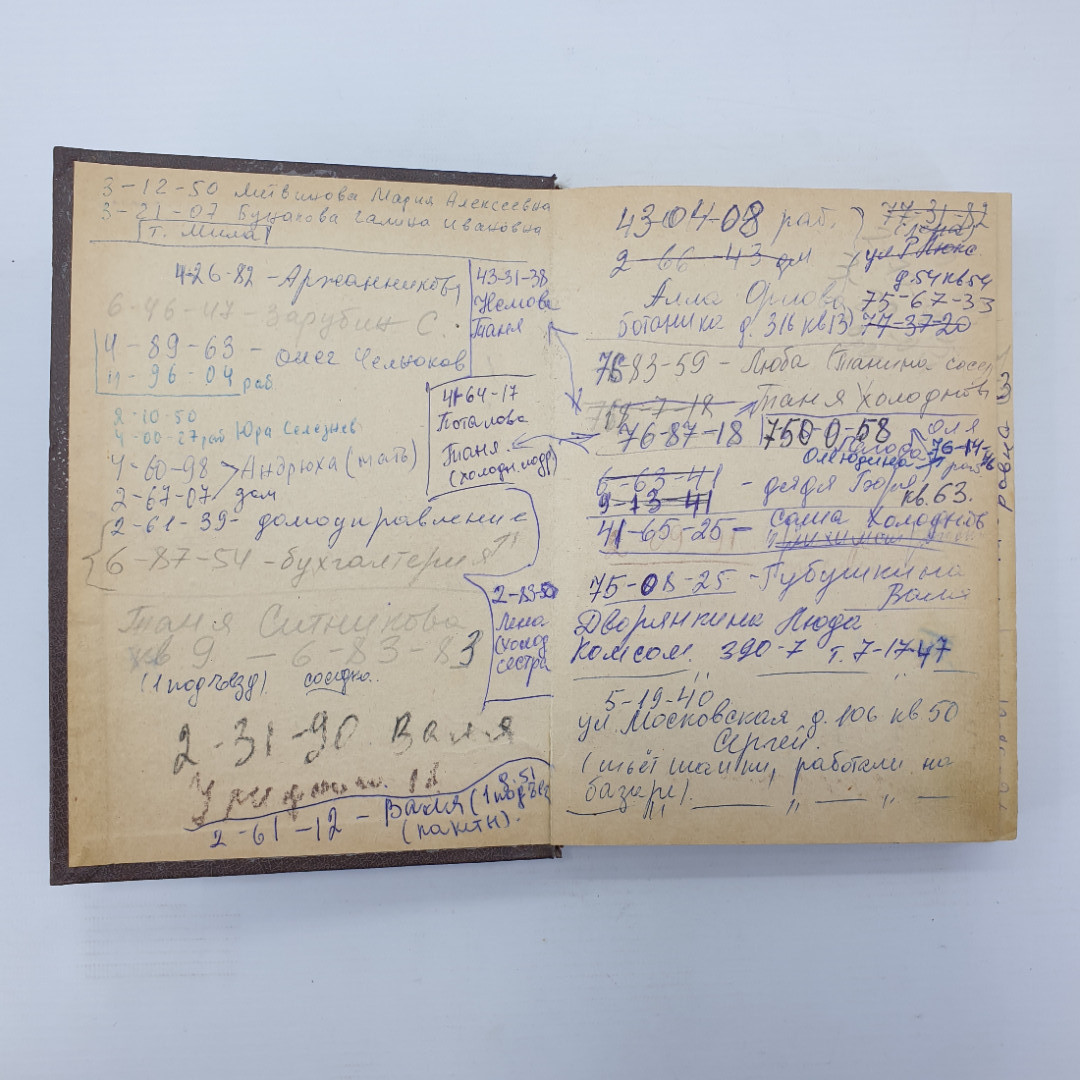 3-12-50 Литвинова Мария Алексеевна
3-21-07 Буцакова Галина Ивановна
(т. Мила)
4-26-82 - Аржанникова
6-46-47 - Зарубин С.
4-89-63 - Олег Чельюков
11-96-04 раб
2-10-50
4-00-27 раб Юра Селезнев
4-60-98 > Андрюха (мать)
2-67-07 дом
2-61-39 - домоуправление
6-87-54 - бухгалтерия
Таня Ситникова
кв 9 - 6-83-83
(1 подъезд). соседка..
2-31-90 Валя
2-61-12 - Валя (1 подъезд
43-31-38
Немова
Таня
41-64-17
Потапова
Таня.
(холодн. подр)
2-83-50
Лена
(холод
сестра
43-04-08 раб.
2-66-43 дм
Алла Орлова
Ботаника д. 31б кв 13)
77-31-82
ул. Р. Люкс.
д. 54 кв 54
75-67-33
77-37-20
76-83-59 - Люба (Танина сосед
Таня Холоднов
76-87-18
750-0-58 Оля
6-63-41
9-13-41 - дядя Боря
кв. 63.
41-65-25 - Саша Холоднов
75-08-25 - Губушкина
Валя
Дворянкина Люда
Комсом. 390-7 т. 7-17-47
5-19-40
ул. Московская д. 106 кв 50
Сергей.
(шьёт шапки, работали на
базаре).
равна 3